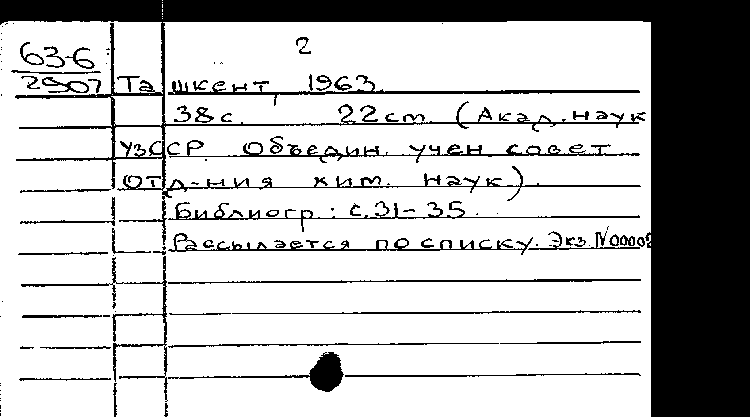 2
63-6
2907
Ташкент, 1963.
38 с. 22 см. (Акад. наук
УзССР. Объедин. учен. совет
Отд-ния хим. наук).
Библиогр.: с. 31-35.
Рассылается по списку. Экз. №